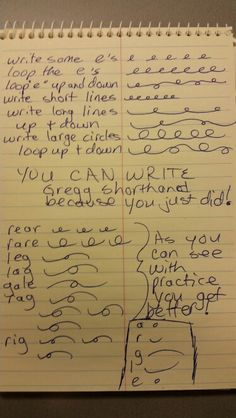 write some e's
loop the e's
loop "e" up and down
write short lines
write long lines
up + down
write large circles
loop up + down
YOU CAN WRITE
Gregg shorthand
because you just did!
rear
fare
leg
lag
gale
rag
rig
As you
can see
with
practice
you get
better!
a
r
g
l
e